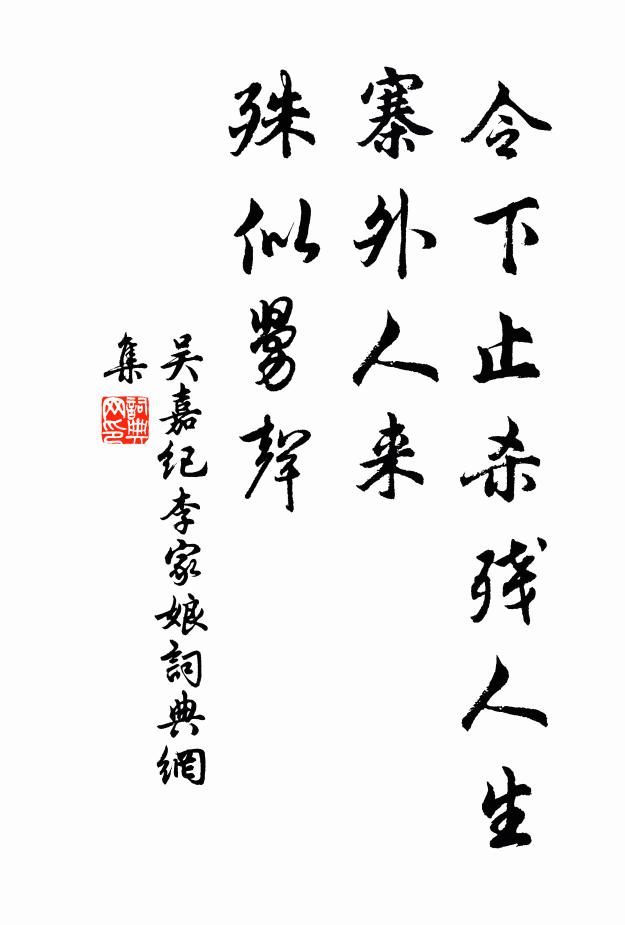 令下止杀残人生
寨外人来
殊似舅聲
吴嘉纪李家娘詞典網
集
詞典
网印